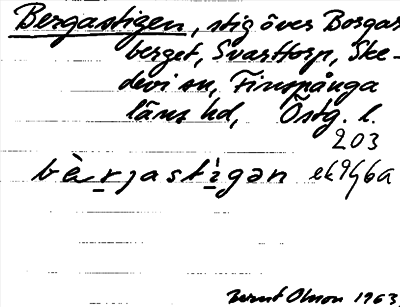 Bergastigen, stig över Borgar
berget, Svarttorp, Ske-
devi sn, Finspånga
läns hd, Östg. l.
203
bèrgastìgən ek 9f6a
Bernt Olsson 1963.